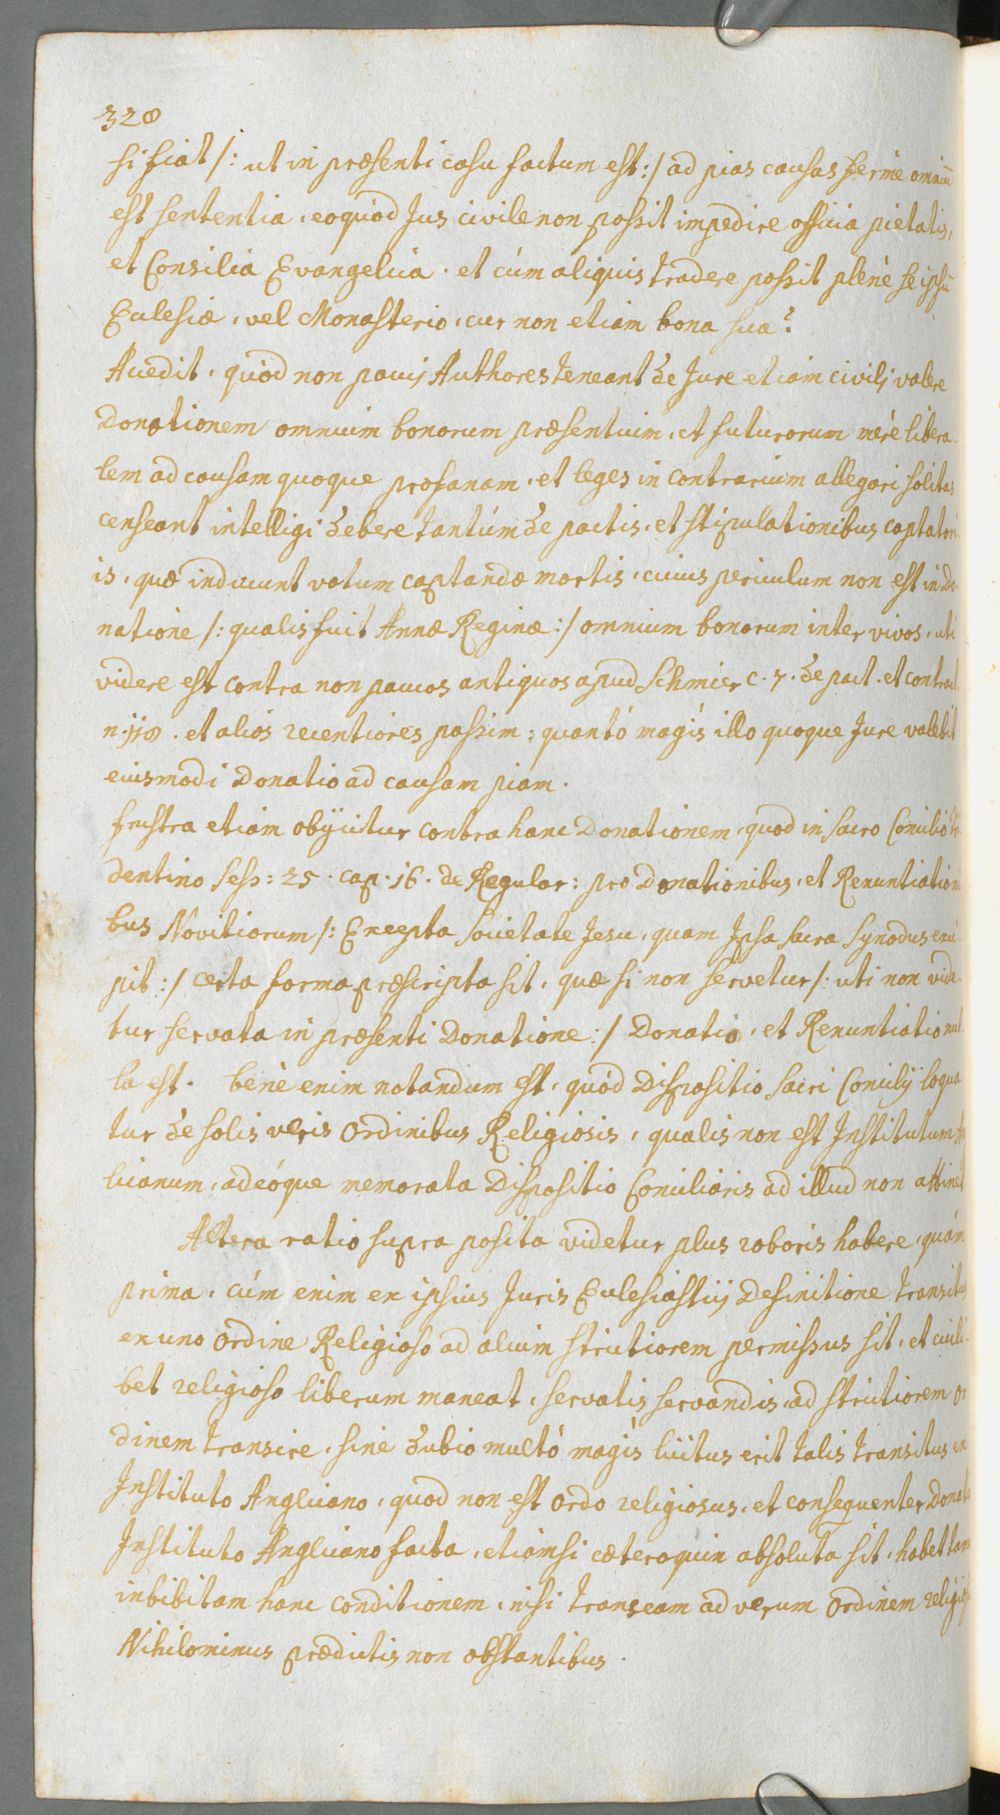 328
si fiat /: ut in præsenti casu factum est :/ ad pias causas fermè omniũ
est sententia, eoquód Jus civile non possit impedire officia pietatis,
et Consilia Evangelica. et cúm aliquis tradere possit plenè se ipsũ
Ecclesiæ, vel Monasterio, cur non etiam bona sua?
Accedit, quód non pauci Authores teneant de Jure etiam civili valere
Donationem omnium bonorum præsentium, et futurorum merè libera-
lem ad causam quoque profanam, et leges in contrarium allegari solitas
censeant intelligi debere tantúm de pactis, et stipulationibus captatori-
is, quæ inducunt votum captandæ mortis, cuius periculum non est in Do-
natione /: qualis fuit Annæ Reginæ :/ omnium bonorum inter vivos, uti
videre est contra non paucos antiquos apud Schmier c. 7. de pact. et contract.
n. 118. et alios recentiores passim; quantó magis illo quoque Jure valebit
eiusmodi Donatio ad causam piam.
frustra etiam obijcitur contra hanc Donationem, quod in sacro Concilio Tri-
dentino sess: 25. cap. 16. de Regular: pro Donationibus, et Renuntiationi-
bus Novitiorum /: Excepta Societate Jesu, quam Ipsa sacra Synodus exci-
pit :/ certa forma præscripta sit, quæ si non servetur /: uti non vide-
tur servata in præsenti Donatione :/ Donatio, et Renuntiatio nul-
la est. benè enim notandum est, quód Dispositio sacri Concilij loqua-
tur de solis veris Ordinibus Religiosis, qualis non est Institutum An-
licanum, adeóque memorata Dispositio Conciliaris ad illud non attinet
Altera ratio supra posita videtur plus roboris habere, quám
prima, cúm enim ex ipsius Juris Ecclesiastici Definitione transitus
ex uno Ordine Religioso ad alium strictiorem permissus sit, et cuili-
bet religioso liberum maneat, servatis servandis, ad strictiorem or-
dinem transire, sine dubio multó magis licitus erit talis transitus ex
Instituto Anglicano, quod non est Ordo religiosus, et consequenter Donatio
Instituto Anglicano facta, etiamsi cæteroquin absoluta sit, habet tamen
inbibitam hanc conditionem, nisi transeam ad verum Ordinem religios
Nihilominus prædictis non obstantibus.